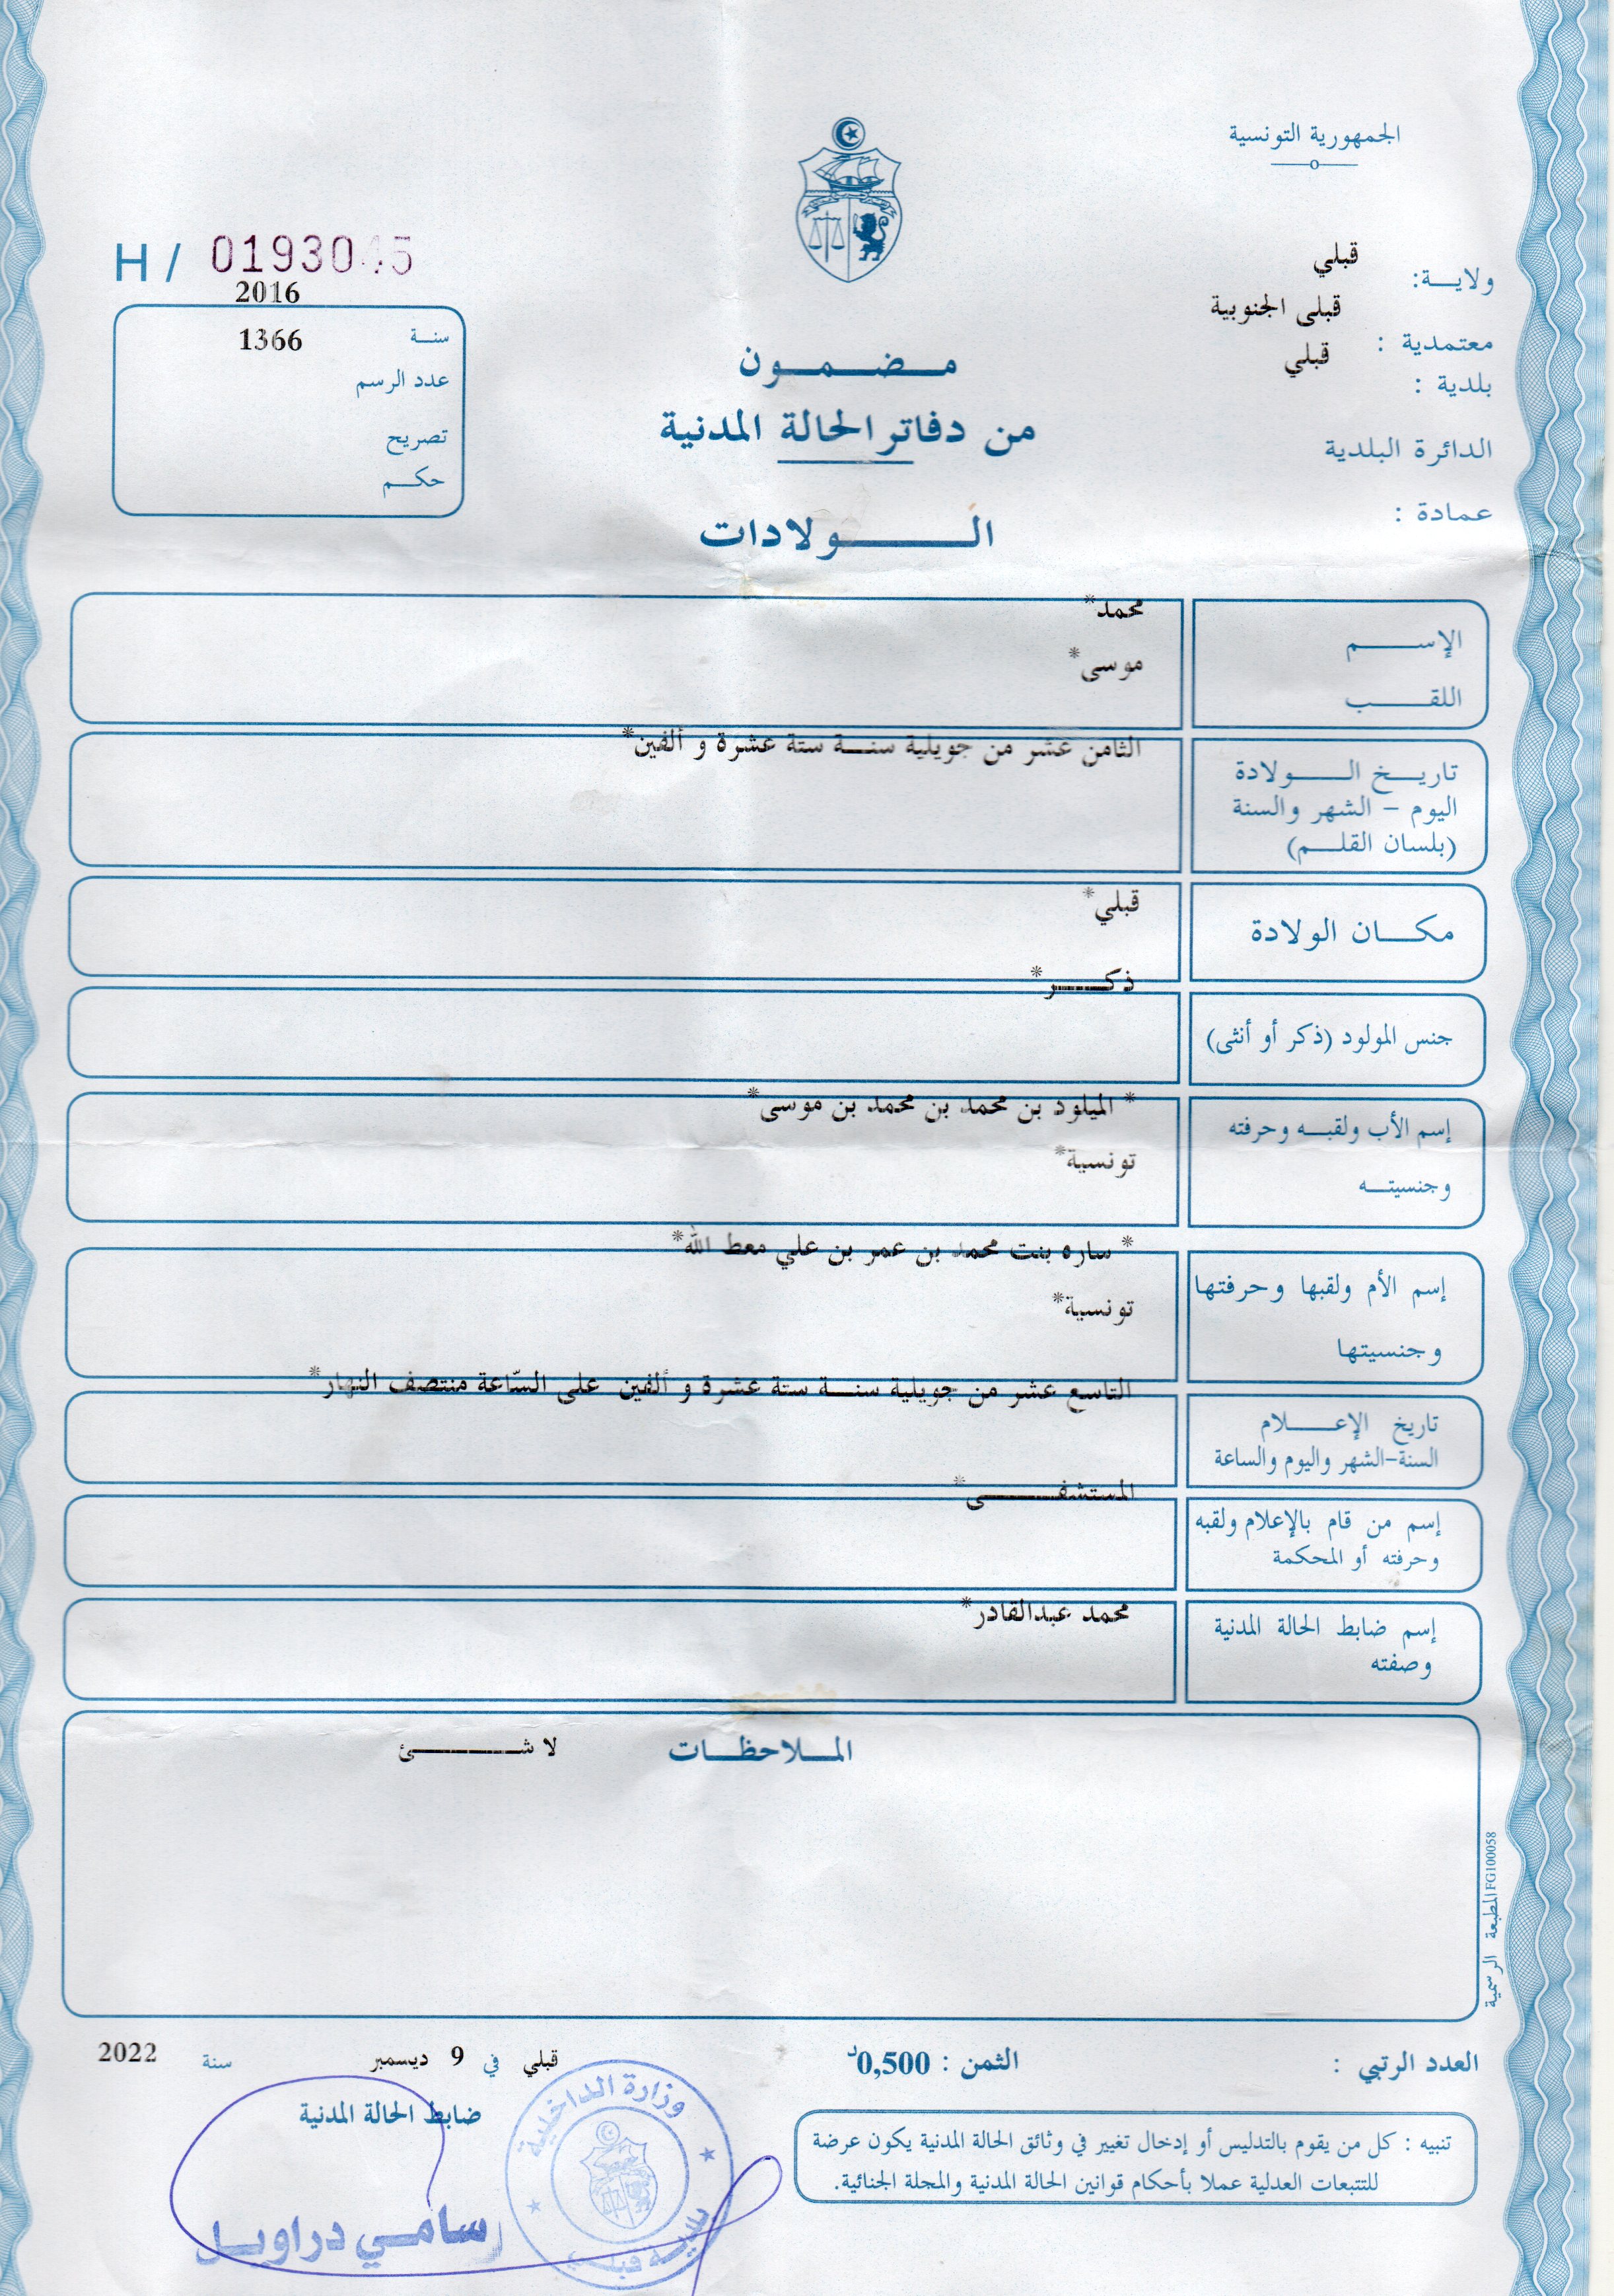 الجمهورية التونسية
ولاية: قبلي
معتمدية : قبلى الجنوبية
بلدية : قبلي
الدائرة البلدية
عمادة :
H / 0193045
2016
سنة 1366
عدد الرسم
تصريح
حكم
مضمون
من دفاتر الحالة المدنية
الولادات
الإسم محمد*
اللقب موسى*
تاريخ الولادة
اليوم - الشهر والسنة
(بلسان القلم)
الثامن عشر من جويلية سنة ستة عشرة و ألفين*
مكان الولادة
قبلي*
جنس المولود (ذكر أو أنثى)
ذكر*
إسم الأب ولقبه وحرفته
* الميلود بن محمد بن محمد بن موسى*
وجنسيته
تونسية*
إسم الأم ولقبها وحرفتها
* ساره بنت محمد بن عمر بن علي معط الله*
وجنسيتها
تونسية*
تاريخ الإعلام
السنة-الشهر واليوم والساعة
التاسع عشر من جويلية سنة ستة عشرة و ألفين على السّاعة منتصف النهار*
إسم من قام بالإعلام ولقبه
وحرفته أو المحكمة
المستشفى*
إسم ضابط الحالة المدنية
وصفته
محمد عبدالقادر*
الملاحظات
لا شئ
المطبعة الرسمية FG100058
العدد الرتبي :
الثمن : 0,500د
قبلي في 9 ديسمبر سنة 2022
ضابط الحالة المدنية
تنبيه : كل من يقوم بالتدليس أو إدخال تغيير في وثائق الحالة المدنية يكون عرضة
للتتبعات العدلية عملا بأحكام قوانين الحالة المدنية والمجلة الجنائية.
وزارة الداخلية
بلدية قبلي
سامي دراويل